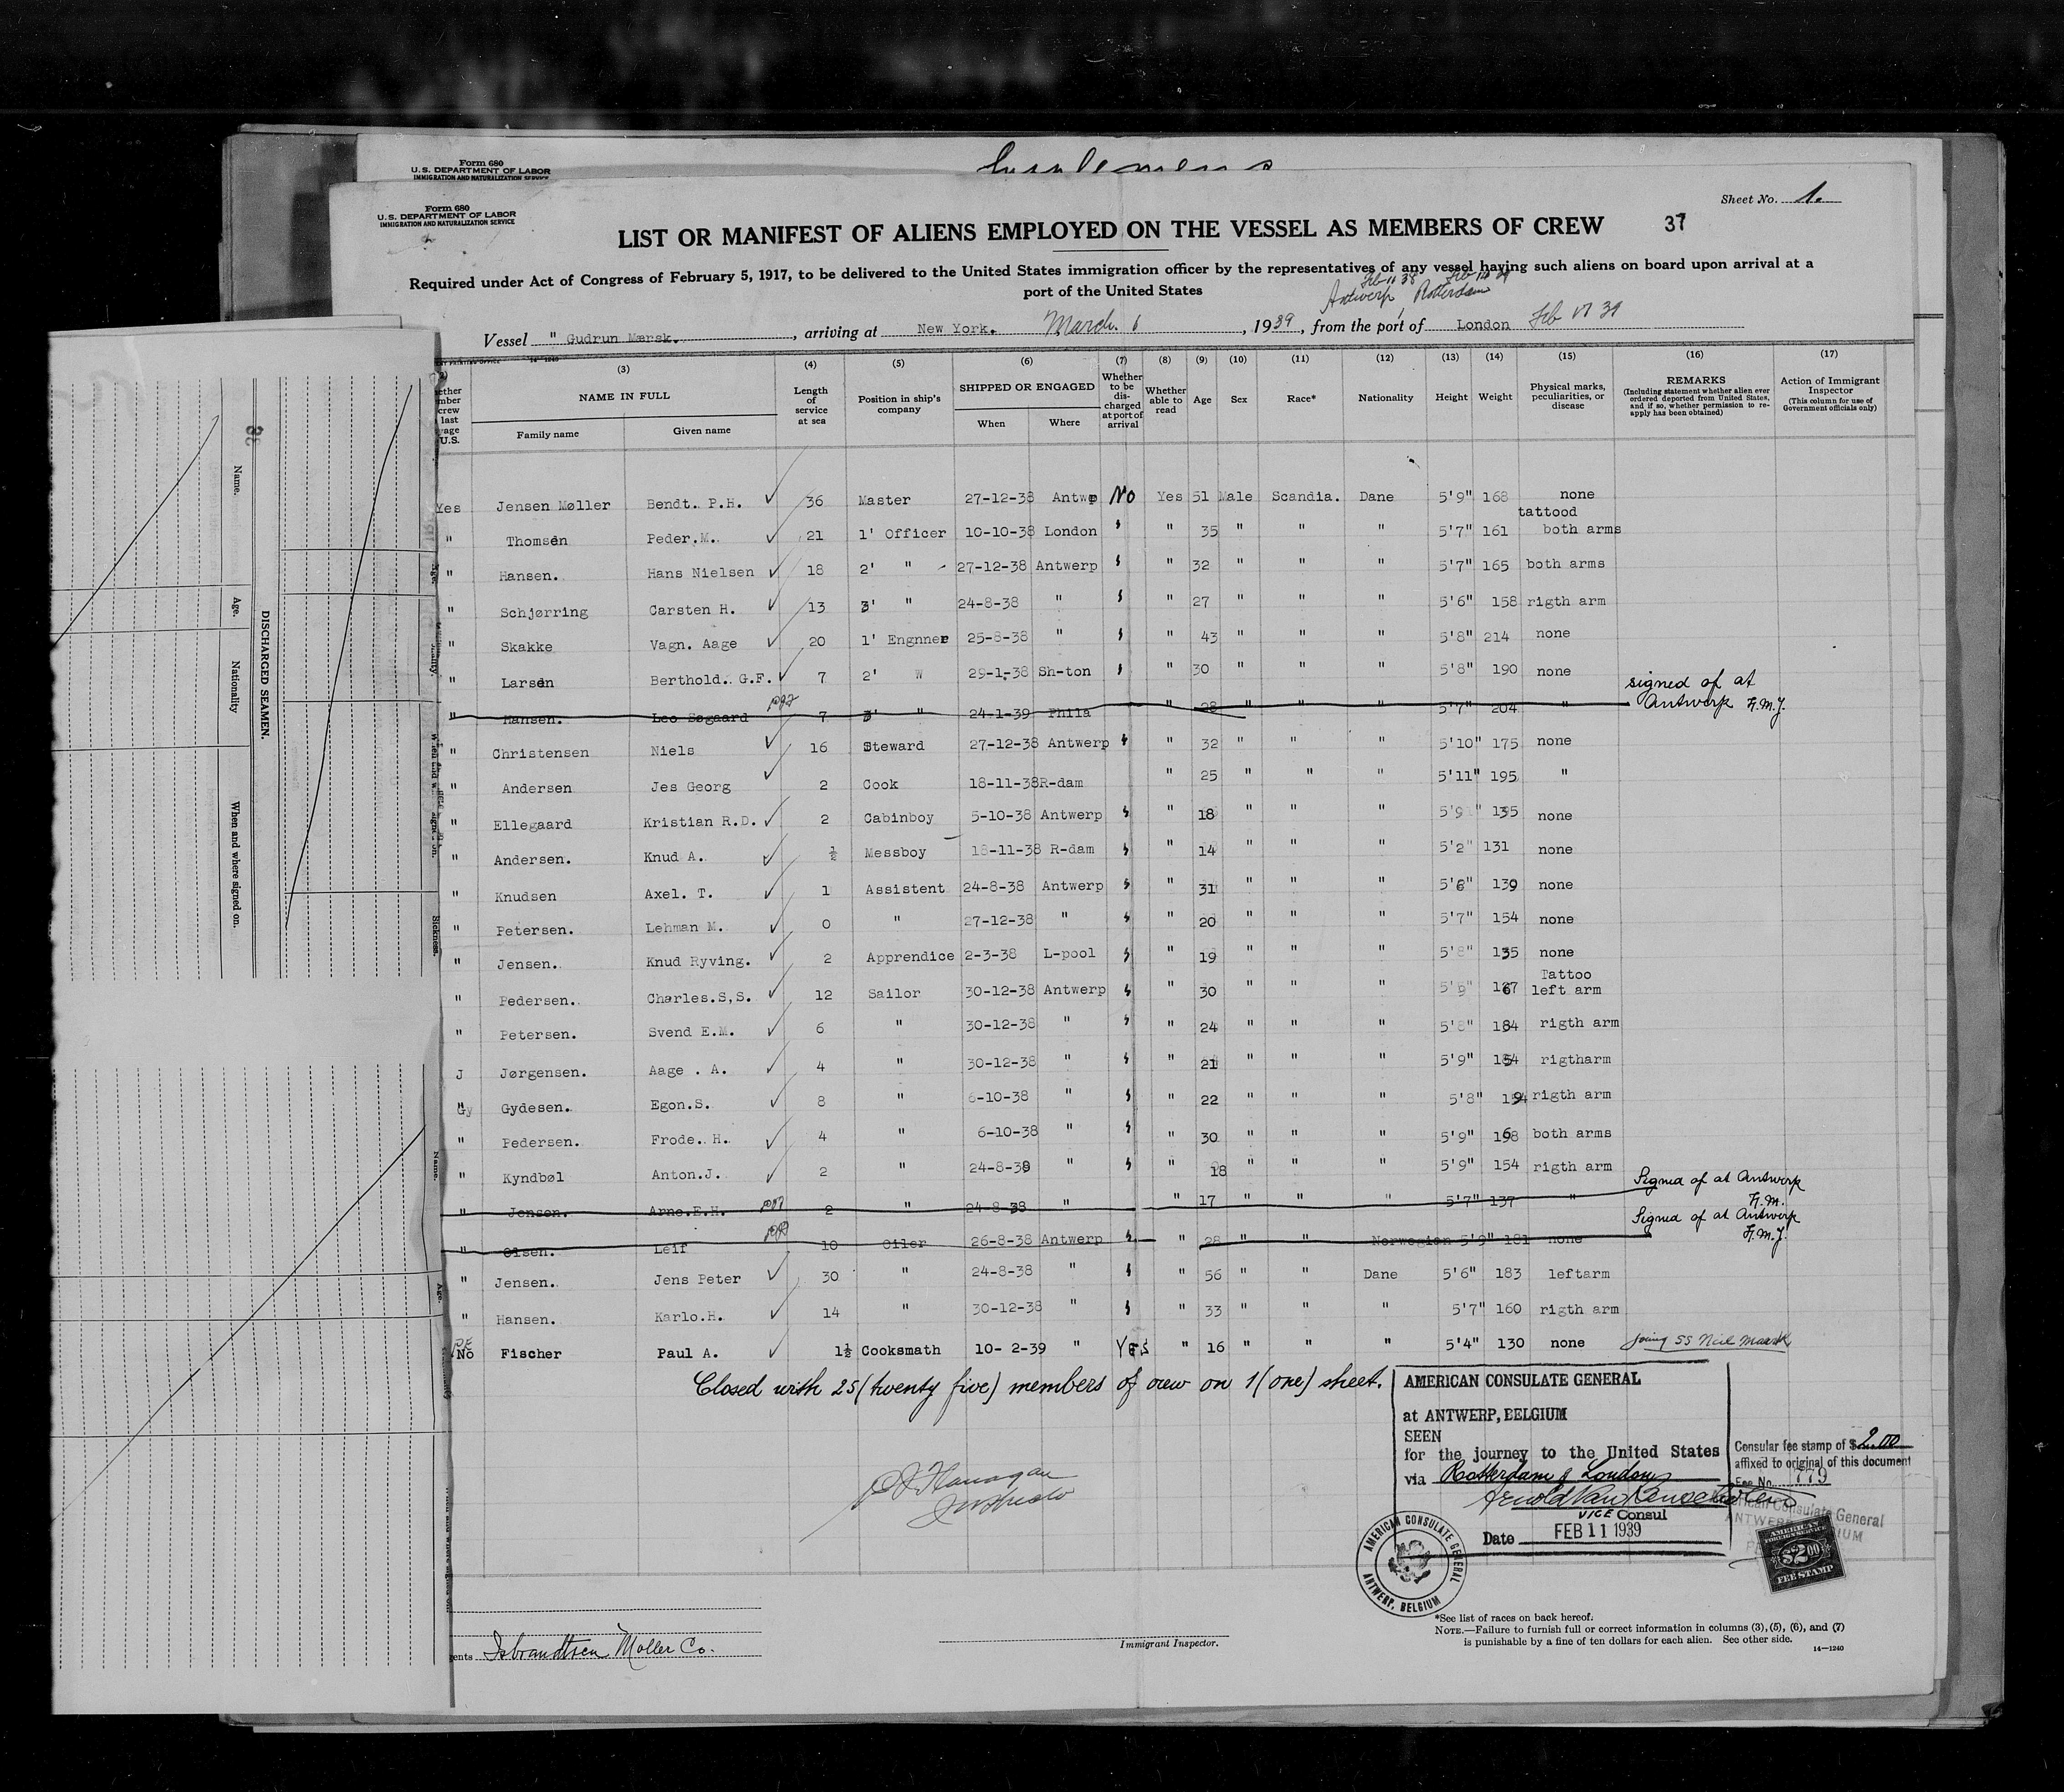 Form 680
U.S. DEPARTMENT OF LABOR
IMMIGRATION AND NATURALIZATION SERVICE
Form 680
U.S. DEPARTMENT OF LABOR
IMMIGRATION AND NATURALIZATION SERVICE
Sheet No. 1.
LIST OR MANIFEST OF ALIENS EMPLOYED ON THE VESSEL AS MEMBERS OF CREW
37
Required under Act of Congress of February 5, 1917, to be delivered to the United States immigration officer by the representatives of any vessel having such aliens on board upon arrival at a
port of the United States
Feb 11 38
Antwerp Rotterdam
Vessel " Gudrun Mærsk. , arriving at New York. March. 6 , 1939 , from the port of London Feb 17 39
(3) (4) (5) (6) (7) (8) (9) (10) (11) (12) (13) (14) (15) (16) (17)
NAME IN FULL
Family name
Given name
Length of service at sea
Position in ship's company
SHIPPED OR ENGAGED
When
Where
Whether to be discharged at port of arrival
Whether able to read
Age
Sex
Race*
Nationality
Height
Weight
Physical marks, peculiarities, or disease
REMARKS
(Including statement whether alien ever ordered deported from United States, and if so, whether permission to reapply has been obtained)
Action of Immigrant Inspector
(This column for use of Government officials only)
Yes Jensen Møller Bendt. P.H. ✓ 36 Master 27-12-38 Antwp No Yes 51 Male Scandia. Dane 5'9" 168 none
" Thomsen Peder.M. ✓ 21 1' Officer 10-10-38 London " " 35 " " " 5'7" 161 tattood both arms
" Hansen. Hans Nielsen ✓ 18 2' " 27-12-38 Antwerp " " 32 " " " 5'7" 165 both arms
" Schjørring Carsten H. ✓ 13 3' " 24-8-38 " " " 27 " " " 5'6" 158 rigth arm
" Skakke Vagn. Aage ✓ 20 1' Engnner 25-8-38 " " " 43 " " " 5'8" 214 none
" Larsen Berthold. G.F. ✓ 7 2' W 29-1-38 Sh-ton " " 30 " " " 5'8" 190 none
" Hansen. Leo Søgaard 7 3' " 24-1-39 Phila " 28 " " " 5'7" 204 " signed of at Antwerp H.M.J.
" Christensen Niels ✓ 16 Steward 27-12-38 Antwerp " " 32 " " " 5'10" 175 none
" Andersen Jes Georg ✓ 2 Cook 18-11-38 R-dam " 25 " " " 5'11" 195 "
" Ellegaard Kristian R.D. ✓ 2 Cabinboy 5-10-38 Antwerp " " 18 " " " 5'9" 135 none
" Andersen. Knud A. ✓ ½ Messboy 18-11-38 R-dam " " 14 " " " 5'2" 131 none
" Knudsen Axel. T. ✓ 1 Assistent 24-8-38 Antwerp " " 31 " " " 5'6" 139 none
" Petersen. Lehman M. ✓ 0 " 27-12-38 " " " 20 " " " 5'7" 154 none
" Jensen. Knud Ryving. ✓ 2 Apprendice 2-3-38 L-pool " " 19 " " " 5'8" 135 none
" Pedersen. Charles.S,S. ✓ 12 Sailor 30-12-38 Antwerp " " 30 " " " 5'9" 167 Tattoo left arm
" Petersen. Svend E.M. ✓ 6 " 30-12-38 " " " 24 " " " 5'8" 184 rigth arm
J Jørgensen. Aage . A. ✓ 4 " 30-12-38 " " " 21 " " " 5'9" 154 rigtharm
" Gydesen. Egon.S. ✓ 8 " 6-10-38 " " " 22 " " " 5'8" 194 rigth arm
" Pedersen. Frode. H. ✓ 4 " 6-10-38 " " " 30 " " " 5'9" 168 both arms
" Kyndbøl Anton.J. ✓ 2 " 24-8-38 " " " 18 " " " 5'9" 154 rigth arm
" Jensen. Arne.E.H. 2 " 24-8-38 " " 17 " " " 5'7" 137 " Signed of at Antwerp H.M.
" Olsen. Leif 10 Oiler 26-8-38 Antwerp " " 28 " " Norwegian 5'9" 181 none Signed of at Antwerp H.M.J.
" Jensen. Jens Peter ✓ 30 " 24-8-38 " " " 56 " " Dane 5'6" 183 leftarm
" Hansen. Karlo.H. ✓ 14 " 30-12-38 " " " 33 " " " 5'7" 160 rigth arm
No Fischer Paul A. ✓ 1½ Cooksmath 10- 2-39 " Yes " 16 " " " 5'4" 130 none joing SS Niel Maersk
Closed with 25 (twenty five) members of crew on 1 (one) sheet.
AMERICAN CONSULATE GENERAL
at ANTWERP, BELGIUM
SEEN
for the journey to the United States
via Rotterdam & London
VICE Consul
Date FEB 11 1939
Consular fee stamp of $2.00
affixed to original of this document
Fee No. 779
AMERICAN CONSULATE GENERAL
ANTWERP, BELGIUM
AMERICAN
FOREIGN SERVICE
$2.00
FEE STAMP
Isbrandtsen Moller Co.
Immigrant Inspector.
*See list of races on back hereof.
NOTE.—Failure to furnish full or correct information in columns (3), (5), (6), and (7)
is punishable by a fine of ten dollars for each alien. See other side.
14—1240
DISCHARGED SEAMEN.
Name.
Age.
Nationality
When and where signed on.
Sickness.
Name.
Age.